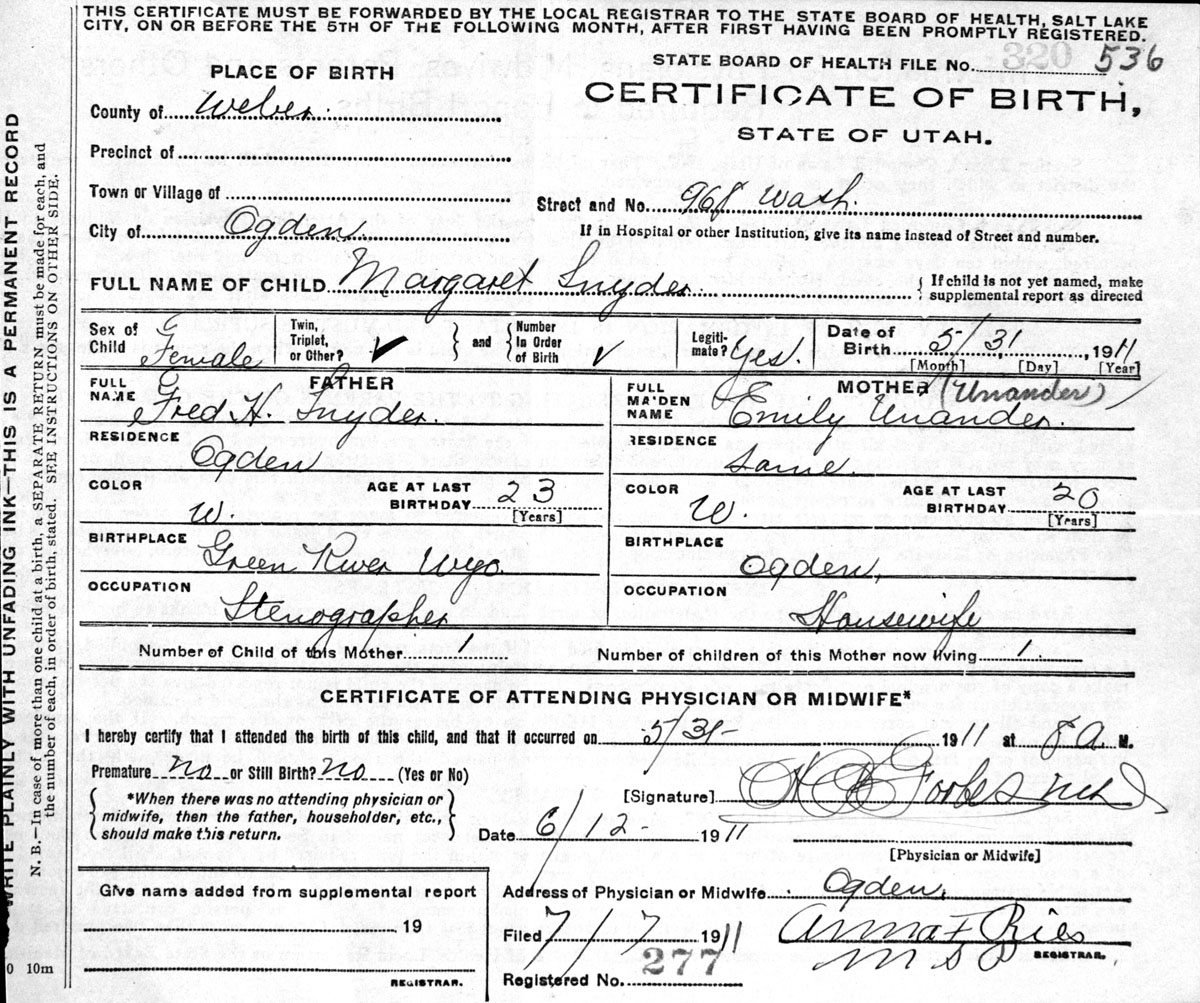 THIS CERTIFICATE MUST BE FORWARDED BY THE LOCAL REGISTRAR TO THE STATE BOARD OF HEALTH, SALT LAKE
CITY, ON OR BEFORE THE 5TH OF THE FOLLOWING MONTH, AFTER FIRST HAVING BEEN PROMPTLY REGISTERED.
320
STATE BOARD OF HEALTH FILE No. 536
PLACE OF BIRTH
CERTIFICATE OF BIRTH,
STATE OF UTAH.
County of Weber
Precinct of
Town or Village of
Street and No. 968 Wash.
City of Ogden
If in Hospital or other Institution, give its name instead of Street and number.
FULL NAME OF CHILD Margaret Snyder
{ If child is not yet named, make
supplemental report as directed
Sex of Child Female
Twin, Triplet, or Other? ✓
} and {
Number In Order of Birth ✓
Legiti-mate? Yes
Date of Birth 5/31, 1911
[Month] [Day] [Year]
FATHER
FULL NAME Fred H. Snyder
RESIDENCE Ogden
COLOR W.
AGE AT LAST BIRTHDAY 23
[Years]
BIRTHPLACE Green River Wyo.
OCCUPATION Stenographer
MOTHER (Unander)
FULL MA'DEN NAME Emily Unander.
RESIDENCE Same.
COLOR W.
AGE AT LAST BIRTHDAY 20
[Years]
BIRTHPLACE Ogden,
OCCUPATION Housewife
Number of Child of this Mother 1
Number of children of this Mother now living 1
CERTIFICATE OF ATTENDING PHYSICIAN OR MIDWIFE*
I hereby certify that I attended the birth of this child, and that it occurred on 5/31- 1911 at 8 A. M.
Premature no or Still Birth? no (Yes or No)
{ *When there was no attending physician or
midwife, then the father, householder, etc.,
should make this return. }
[Signature] H B Forbes MD
Date 6/12- 1911
[Physician or Midwife]
Give name added from supplemental report
19
REGISTRAR.
Address of Physician or Midwife Ogden,
Filed 7/7 1911
Anna F Ries
REGISTRAR.
Registered No. 277
WRITE PLAINLY WITH UNFADING INK—THIS IS A PERMANENT RECORD
N. B.—In case of more than one child at a birth, a SEPARATE RETURN must be made for each, and
the number of each, in order of birth, stated. SEE INSTRUCTIONS ON OTHER SIDE.
0 10m